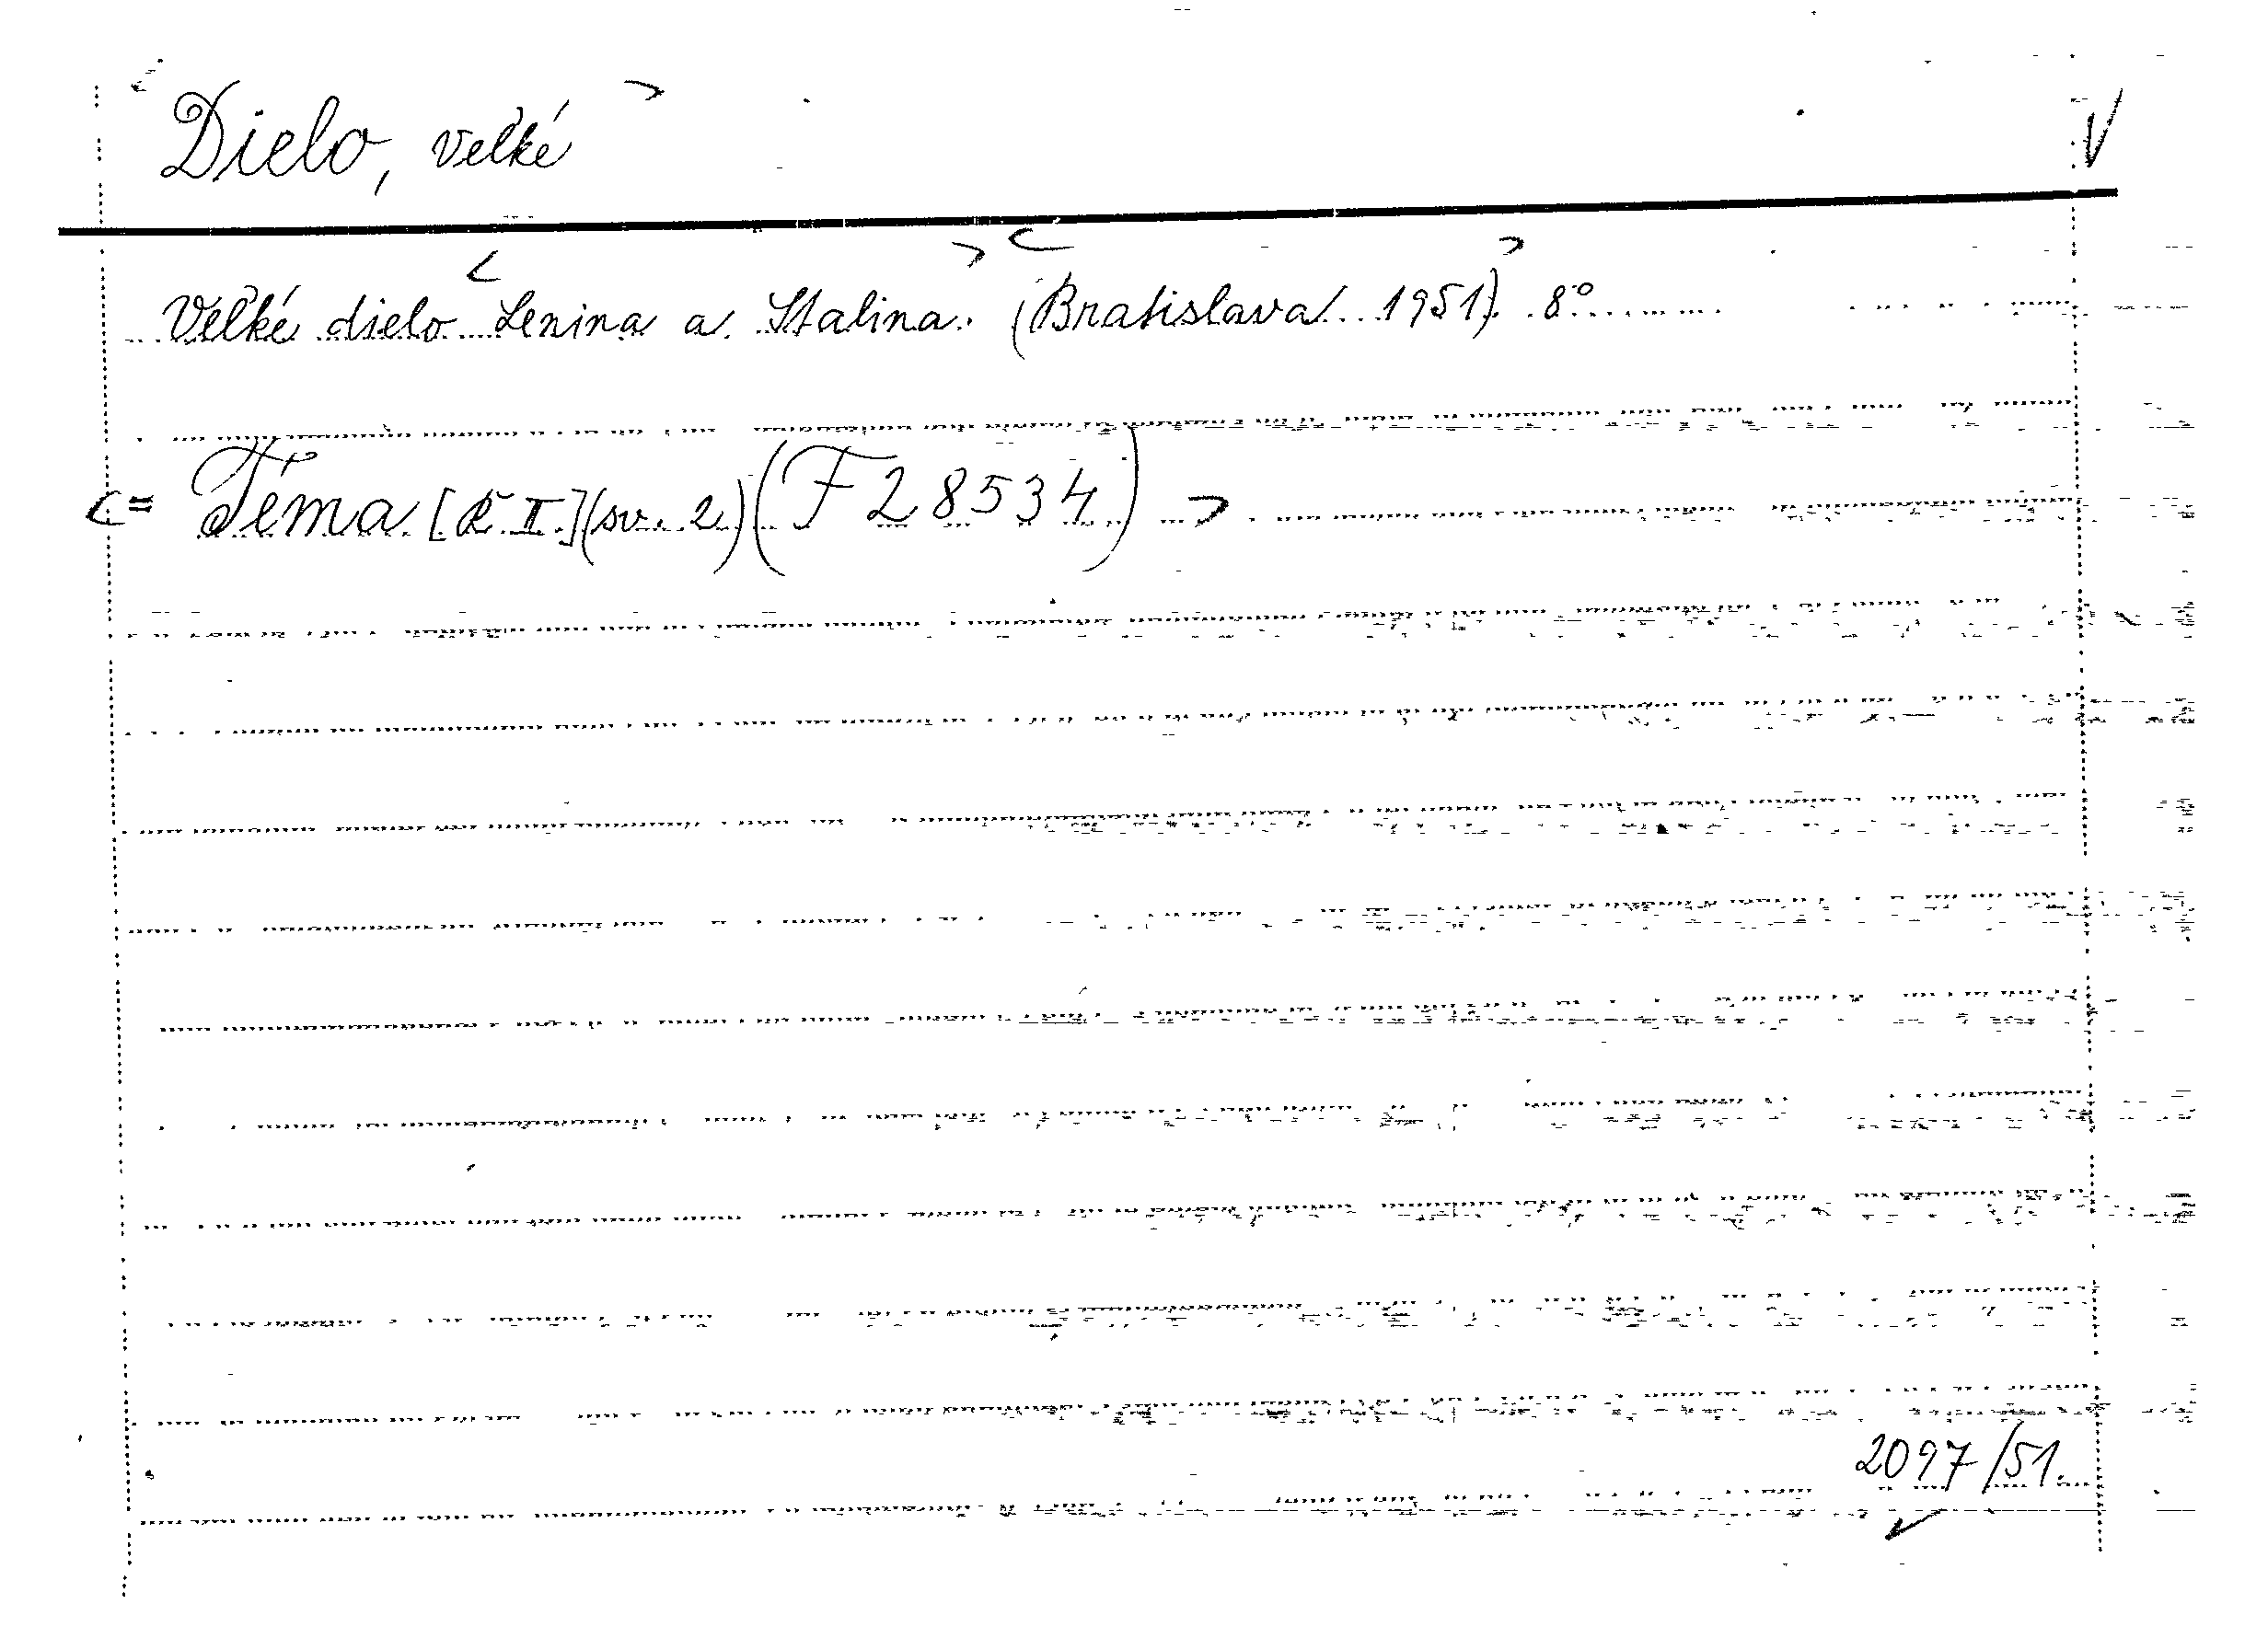 Dielo, veľké
Veľké dielo Lenina a Stalina. (Bratislava 1951). 8°
= Téma [R II] (sv. 2) (F 28534)
2097/51.